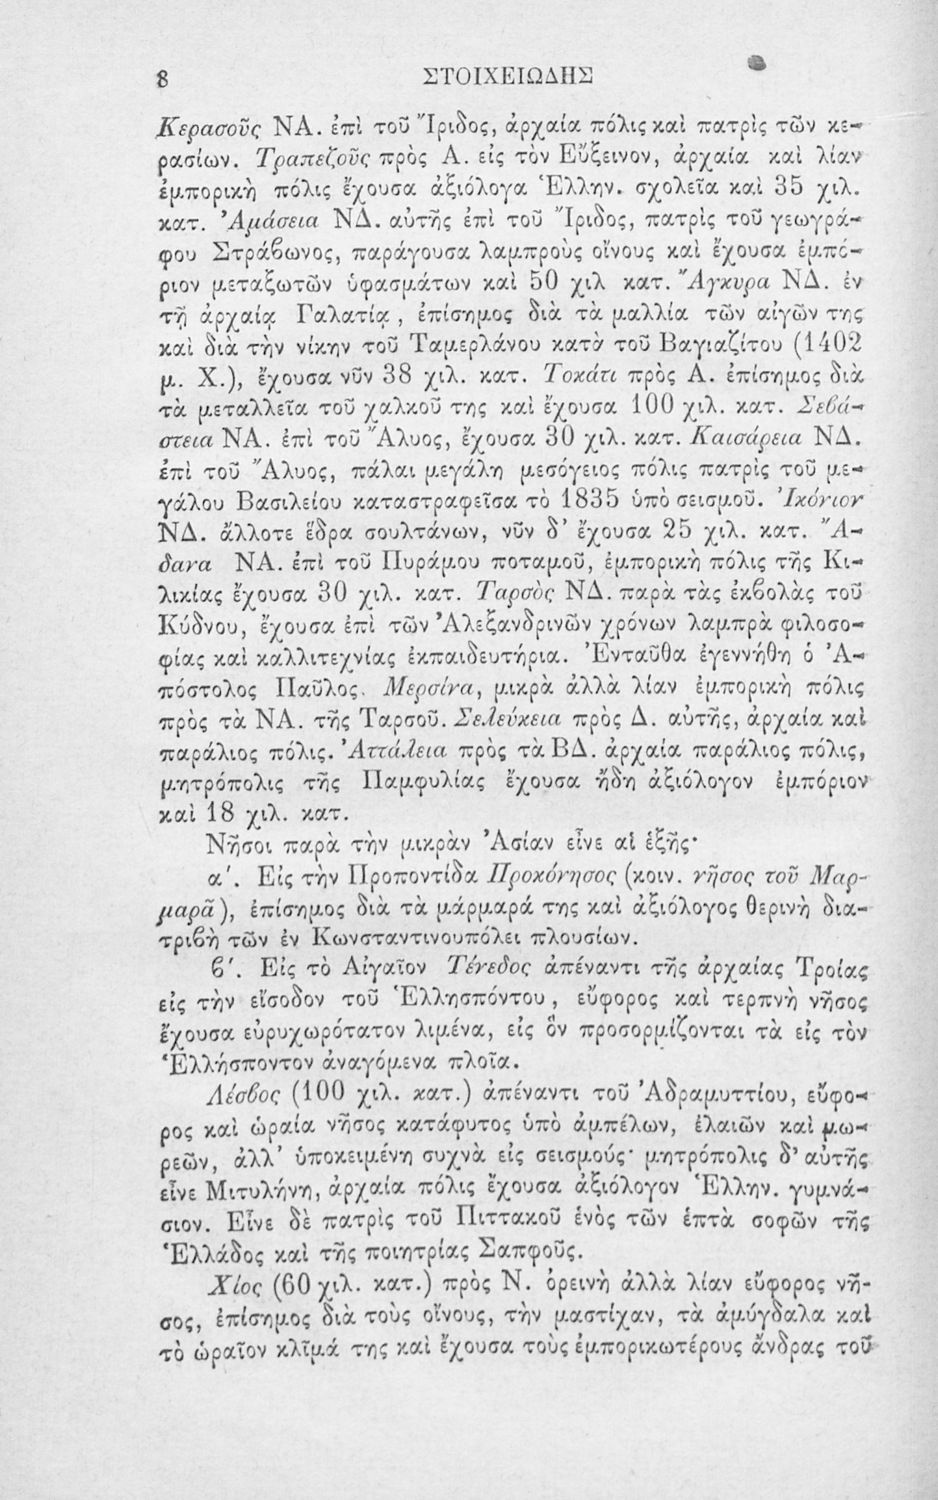 8 ΣΤΟΙΧΕΙΩΔΗΣ
Κερασοῦς ΝΑ. ἐπὶ τοῦ Ἴριδος, ἀρχαία πόλις καὶ πατρὶς τῶν κε-
ρασίων. Τραπεζοῦς πρὸς Α. εἰς τὸν Εὔξεινον, ἀρχαία καὶ λίαν
ἐμπορικὴ πόλις ἔχουσα ἀξιόλογα Ἑλλην. σχολεῖα καὶ 35 χιλ.
κατ. Ἀμάσεια ΝΔ. αὐτῆς ἐπὶ τοῦ Ἴριδος, πατρὶς τοῦ γεωγρά-
φου Στράβωνος, παράγουσα λαμπροὺς οἴνους καὶ ἔχουσα ἐμπό-
ριον μεταξωτῶν ὑφασμάτων καὶ 50 χιλ κατ. Ἄγκυρα ΝΔ. ἐν
τῇ ἀρχαίᾳ Γαλατίᾳ, ἐπίσημος διὰ τὰ μαλλία τῶν αἰγῶν της
καὶ διὰ τὴν νίκην τοῦ Ταμερλάνου κατὰ τοῦ Βαγιαζίτου (1402
μ. Χ.), ἔχουσα νῦν 38 χιλ. κατ. Τοκάτι πρὸς Α. ἐπίσημος διὰ
τὰ μεταλλεῖα τοῦ χαλκοῦ της καὶ ἔχουσα 100 χιλ. κατ. Σεβά-
στεια ΝΑ. ἐπὶ τοῦ Ἅλυος, ἔχουσα 30 χιλ. κατ. Καισάρεια ΝΔ.
ἐπὶ τοῦ Ἅλυος, πάλαι μεγάλη μεσόγειος πόλις πατρὶς τοῦ με-
γάλου Βασιλείου καταστραφεῖσα τὸ 1835 ὑπὸ σεισμοῦ. Ἰκόνιον
ΝΔ. ἄλλοτε ἕδρα σουλτάνων, νῦν δ' ἔχουσα 25 χιλ. κατ. Ἄ-
δανα ΝΑ. ἐπὶ τοῦ Πυράμου ποταμοῦ, ἐμπορικὴ πόλις τῆς Κι-
λικίας ἔχουσα 30 χιλ. κατ. Ταρσὸς ΝΔ. παρὰ τὰς ἐκβολὰς τοῦ
Κύδνου, ἔχουσα ἐπὶ τῶν Ἀλεξανδρινῶν χρόνων λαμπρὰ φιλοσο-
φίας καὶ καλλιτεχνίας ἐκπαιδευτήρια. Ἐνταῦθα ἐγεννήθη ὁ Ἀ-
πόστολος Παῦλος. Μερσίνα, μικρὰ ἀλλὰ λίαν ἐμπορικὴ πόλις
πρὸς τὰ ΝΑ. τῆς Ταρσοῦ. Σελεύκεια πρὸς Δ. αὐτῆς, ἀρχαία καὶ
παράλιος πόλις. Ἀττάλεια πρὸς τὰ ΒΔ. ἀρχαία παράλιος πόλις,
μητρόπολις τῆς Παμφυλίας ἔχουσα ἤδη ἀξιόλογον ἐμπόριον
καὶ 18 χιλ. κατ.
Νῆσοι παρὰ τὴν μικρὰν Ἀσίαν εἶνε αἱ ἑξῆς·
α'. Εἰς τὴν Προποντίδα Προκόνησος (κοιν. νῆσος τοῦ Μαρ-
μαρᾶ), ἐπίσημος διὰ τὰ μάρμαρά της καὶ ἀξιόλογος θερινὴ δια-
τριβὴ τῶν ἐν Κωνσταντινουπόλει πλουσίων.
β'. Εἰς τὸ Αἰγαῖον Τένεδος ἀπέναντι τῆς ἀρχαίας Τροίας
εἰς τὴν εἴσοδον τοῦ Ἑλλησπόντου, εὔφορος καὶ τερπνὴ νῆσος
ἔχουσα εὐρυχωρότατον λιμένα, εἰς ὃν προσορμίζονται τὰ εἰς τὸν
Ἑλλήσποντον ἀναγόμενα πλοῖα.
Λέσβος (100 χιλ. κατ.) ἀπέναντι τοῦ Ἀδραμυττίου, εὔφο-
ρος καὶ ὡραία νῆσος κατάφυτος ὑπὸ ἀμπέλων, ἐλαιῶν καὶ μω-
ρεῶν, ἀλλ' ὑποκειμένη συχνὰ εἰς σεισμούς· μητρόπολις δ' αὐτῆς
εἶνε Μιτυλήνη, ἀρχαία πόλις ἔχουσα ἀξιόλογον Ἑλλην. γυμνά-
σιον. Εἶνε δὲ πατρὶς τοῦ Πιττακοῦ ἑνὸς τῶν ἑπτὰ σοφῶν τῆς
Ἑλλάδος καὶ τῆς ποιητρίας Σαπφοῦς.
Χίος (60 χιλ. κατ.) πρὸς Ν. ὀρεινὴ ἀλλὰ λίαν εὔφορος νῆ-
σος, ἐπίσημος διὰ τοὺς οἴνους, τὴν μαστίχαν, τὰ ἀμύγδαλα καὶ
τὸ ὡραῖον κλῖμά της καὶ ἔχουσα τοὺς ἐμπορικωτέρους ἄνδρας τοῦ